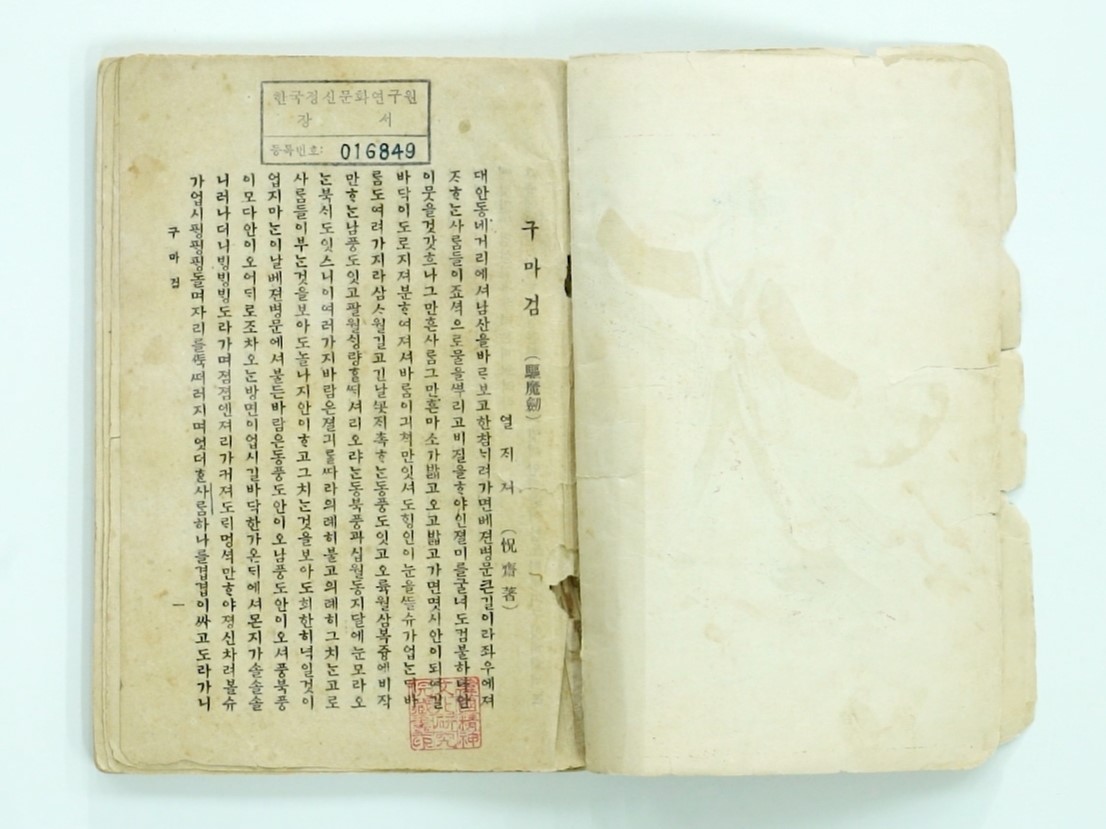 한국정신문화연구원
장 서
등록번호: 016849
구마검 (驅魔劒)
열지저 (悅齋著)
대안동네거리에셔남산을바라보고한참나려가면베젼병문큰길이라좌우에져
자ᄒᆞᄂᆞᆫ사ᄅᆞᆷ들이죠셕으로물을ᄲᅮ리고비질을ᄒᆞ야인졀미를굴녀도검불하나안
이뭇을것갓흐나그만흔사ᄅᆞᆷ그만흔마소가밟고오고밟고가면몃시안이되야길
바닥이도로지져분ᄒᆞ여져셔바ᄅᆞᆷ이긔쳑만잇셔도ᄒᆡᆼ인이눈을ᄯᅳᆯ슈가업ᄂᆞᆫᄃᆡ바
ᄅᆞᆷ도여러가지라삼ᄉᆞ월길고긴날ᄭᅩᆺ지촉ᄒᆞᄂᆞᆫ동풍도잇고오륙월삼복즁에비작
만ᄒᆞᄂᆞᆫ남풍도잇고팔월ᄉᆡᆼ량ᄒᆞᆯᄯᆡ셔리오랴ᄂᆞᆫ동북풍과십월동지달에눈모라오
ᄂᆞᆫ북ᄉᆡ도잇스니이여러가지바람은졀긔를ᄯᅡ라의례히불고의례히그치ᄂᆞᆫ고로
사ᄅᆞᆷ들이부ᄂᆞᆫ것을보아도놀나지안이ᄒᆞ고그치ᄂᆞᆫ것을보아도희한히녁일것이
업지마ᄂᆞᆫ이날베젼병문에셔불든바람은동풍도안이오남풍도안이오셔풍북풍
이모다안이오어ᄃᆡ로조차오ᄂᆞᆫ방면이업시길바닥한가온ᄃᆡ에셔몬지가솔솔솔
니러나더니빙빙빙도라가며졈졈엔져리가커져도리멍셕만ᄒᆞ야졍신차려볼슈
가업시핑핑핑돌며자리를ᄯᅮᆨᄯᅥ러지며엇더ᄒᆞᆫ사ᄅᆞᆷ하나를겹겹이싸고도라가니
구마검
一